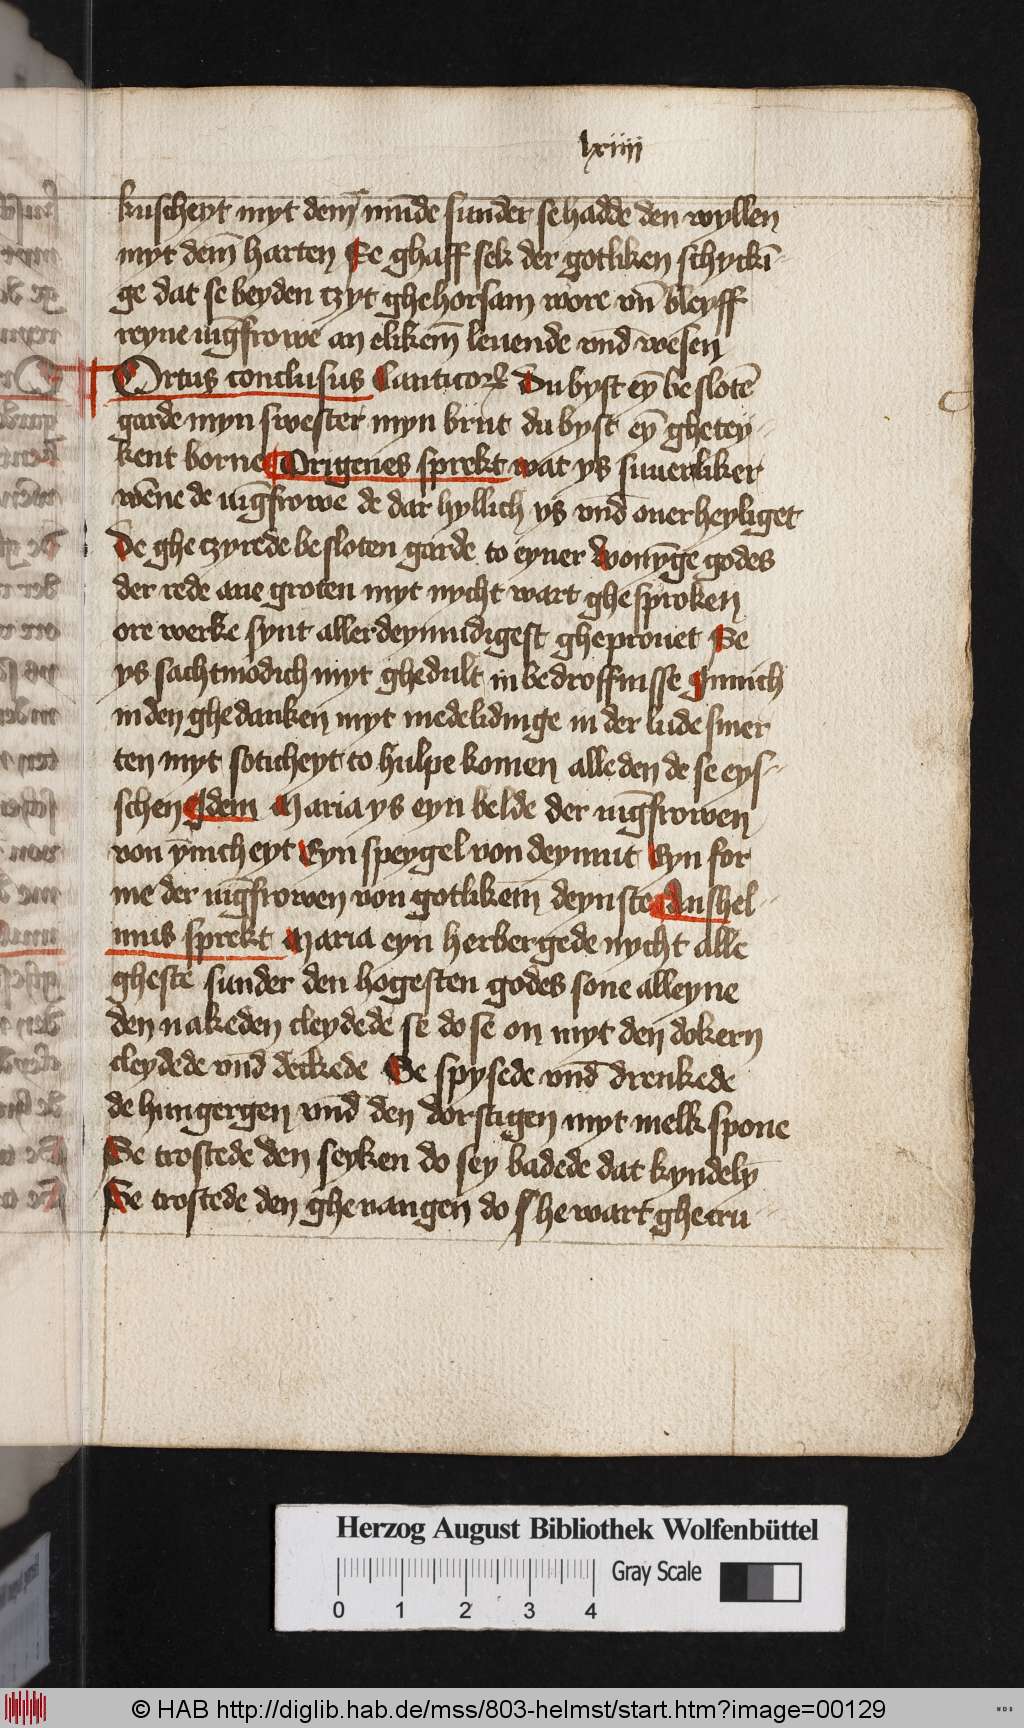 lxiiii
kuscheyt myt dem̄ munde sunder se hadde den wyllen
myt dem̄ harten Se ghaff sek der gotliken schyckī
ge dat se beyden tzyt ghehorsam wore vn̄ bleyff
reyne iūgfrowe an elikem̄ leuende vnd̄ wesen
Ortus conclusus Canticoꝝ Du byst eȳ be slotē
garde myn swester myn brut du byst eȳ ghetey
kent borne Origenes sprekt wat ys suuerliker
wēne de iūgfrowe de dar hyllich ys vnd̄ ouerheyliget
De ghe tzyrede be sloten garde to eyner wonȳge godes
der rede ane groten myt nycht wart ghe sproken
ore werke synt aller deymudigest gheprouet Se
ys sachtmodich myt ghedult in bedroffnisse Innich
in den ghedanken myt medelidinge in der lude smer
ten myt soticheyt to hulpe komen alle den de se eys
schen Idem Maria ys eyn belde der iūgfrowen
von ȳnicheyt Eyn speygel von deymut Eyn for
me der iūgfrowen von gotlikem̄ deynste Anshel
mus sprekt Maria eyn herbergede nycht alle
gheste sunder den hogesten godes sone alleyne
den nakeden cleydede se do se on myt den dokern
cleydede vnd̄ deckede Se spysede vnd̄ drenkede
de hungergen vnd̄ den dorstigen myt melk spone
Se trostede den seyken do sey badede dat kyndelȳ
Se trostede den ghe uangen do he wart ghe cru
Herzog August Bibliothek Wolfenbüttel
Gray Scale
0 1 2 3 4
© HAB http://diglib.hab.de/mss/803-helmst/start.htm?image=00129